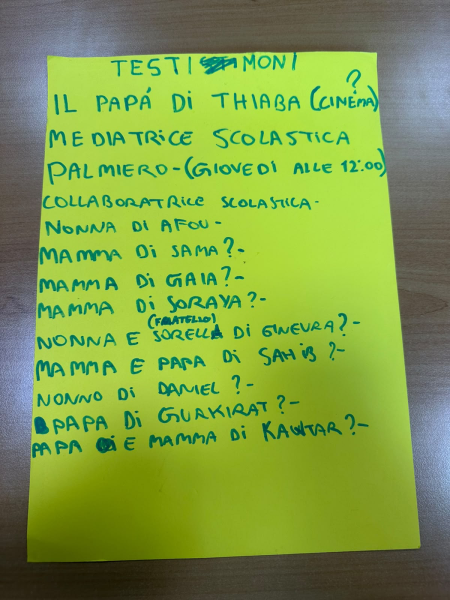 TESTIMONI
?
IL PAPÁ DI THIABA (CINEMA)
MEDIATRICE SCOLASTICA
PALMIERO-(GIOVEDÌ ALLE 12:00)
COLLABORATRICE SCOLASTICA-
NONNA DI AFOU-
MAMMA DI SAMA?-
MAMMA DI GAIA?-
MAMMA DI SORAYA?-
(FRATELLO)
NONNA E SORELLA DI GINEVRA?-
MAMMA E PAPA DI SAHIB?-
NONNO DI DANIEL?-
PAPA DI GURKIRAT?-
PAPA E MAMMA DI KAWTAR?-